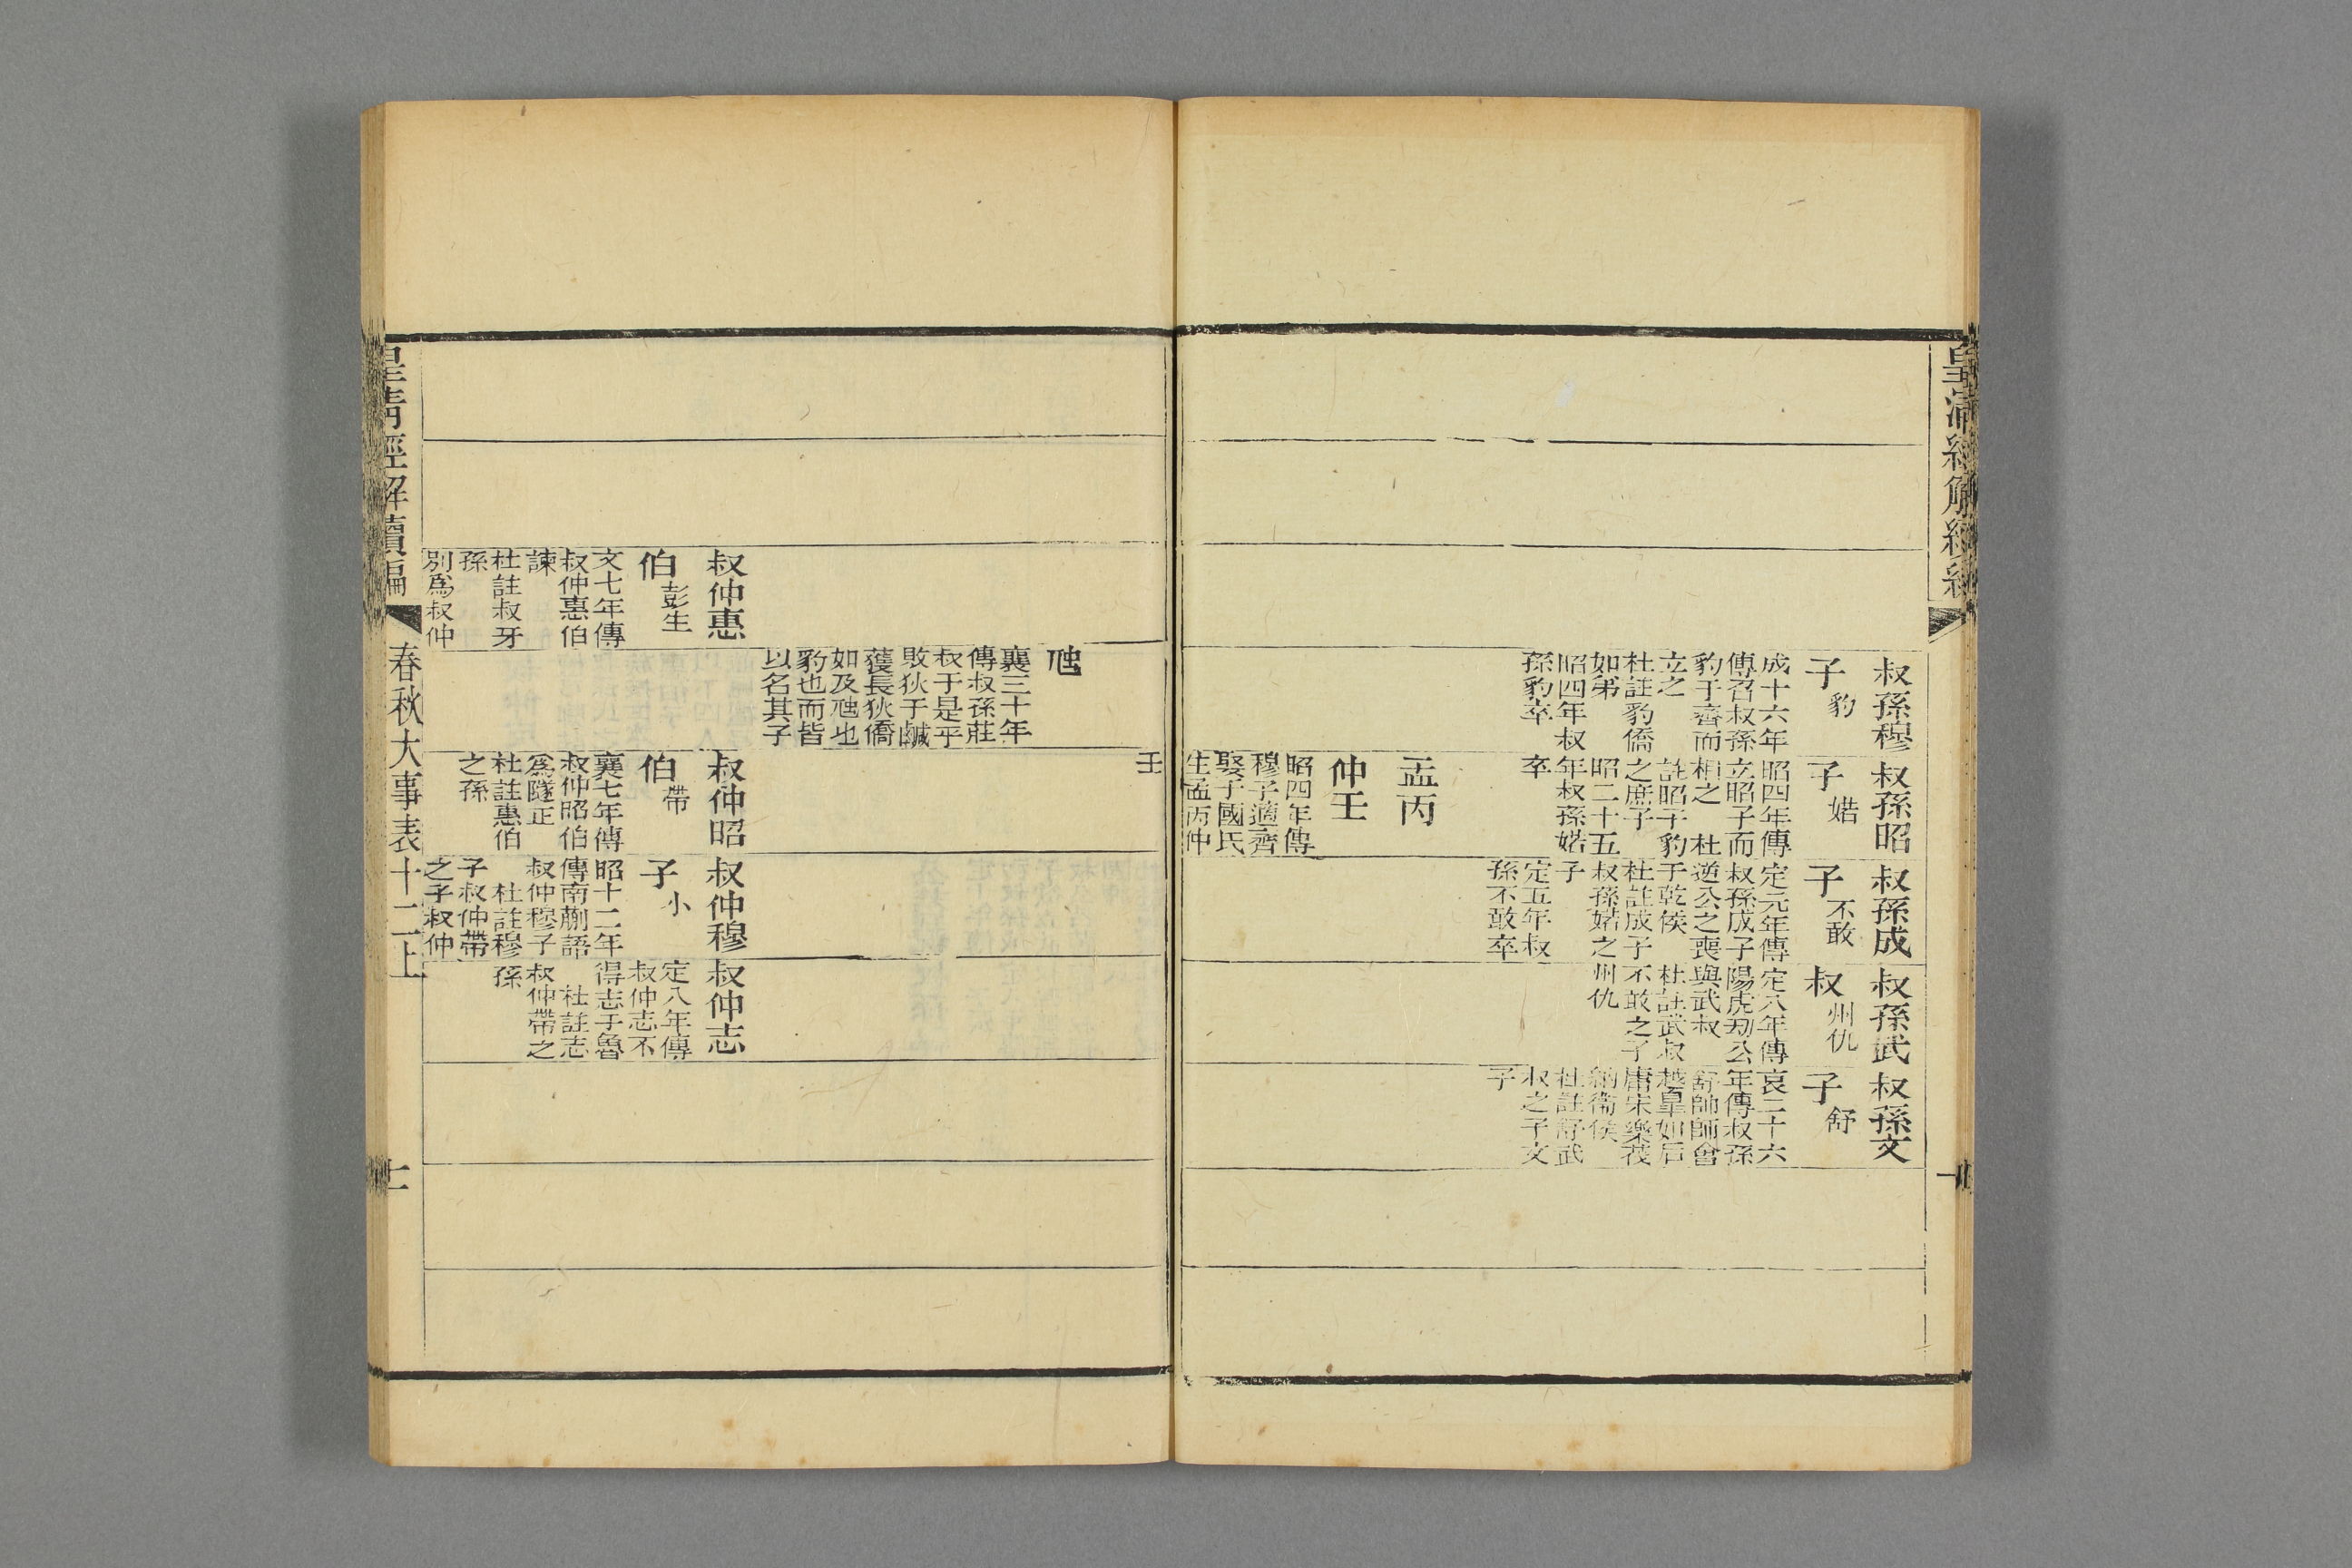 皇清經解續編
叔孫穆
子豹
成十六年
傳召叔孫
豹于齊而
立之
杜註豹僑
如弟
昭四年叔
孫豹卒
叔孫昭
子婼
昭四年傳
立昭子而
相之 杜
註昭子豹
之庶子
昭二十五
年叔孫婼
卒
孟丙
仲壬
昭四年傳
穆子適齊
娶于國氏
生孟丙仲
叔孫成
子不敢
定元年傳
叔孫成子
逆公之喪
于乾侯
杜註成子
叔孫婼之
子
定五年叔
孫不敢卒
叔孫武
叔州仇
定八年傳
陽虎刼公
與武叔
杜註武叔
不敢之子
州仇
叔孫文
子舒
哀二十六
年傳叔孫
舒帥師會
越臯如后
庸宋樂茷
納衛侯
杜註舒武
叔之子文
子
壬
虺
襄三十年
傳叔孫莊
叔于是乎
敗狄于鹹
獲長狄僑
如及虺也
豹也而皆
以名其子
叔仲惠
伯彭生
文七年傳
叔仲惠伯
諫
杜註叔牙
孫
別爲叔仲
叔仲昭
伯帶
襄七年傳
叔仲昭伯
爲隧正
杜註惠伯
之孫
叔仲穆
子小
昭十二年
傳南蒯語
叔仲穆子
杜註穆
子叔仲帶
之子叔仲
叔仲志
定八年傳
叔仲志不
得志于魯
杜註志
叔仲帶之
孫
皇清經解續編
春秋大事表十二上